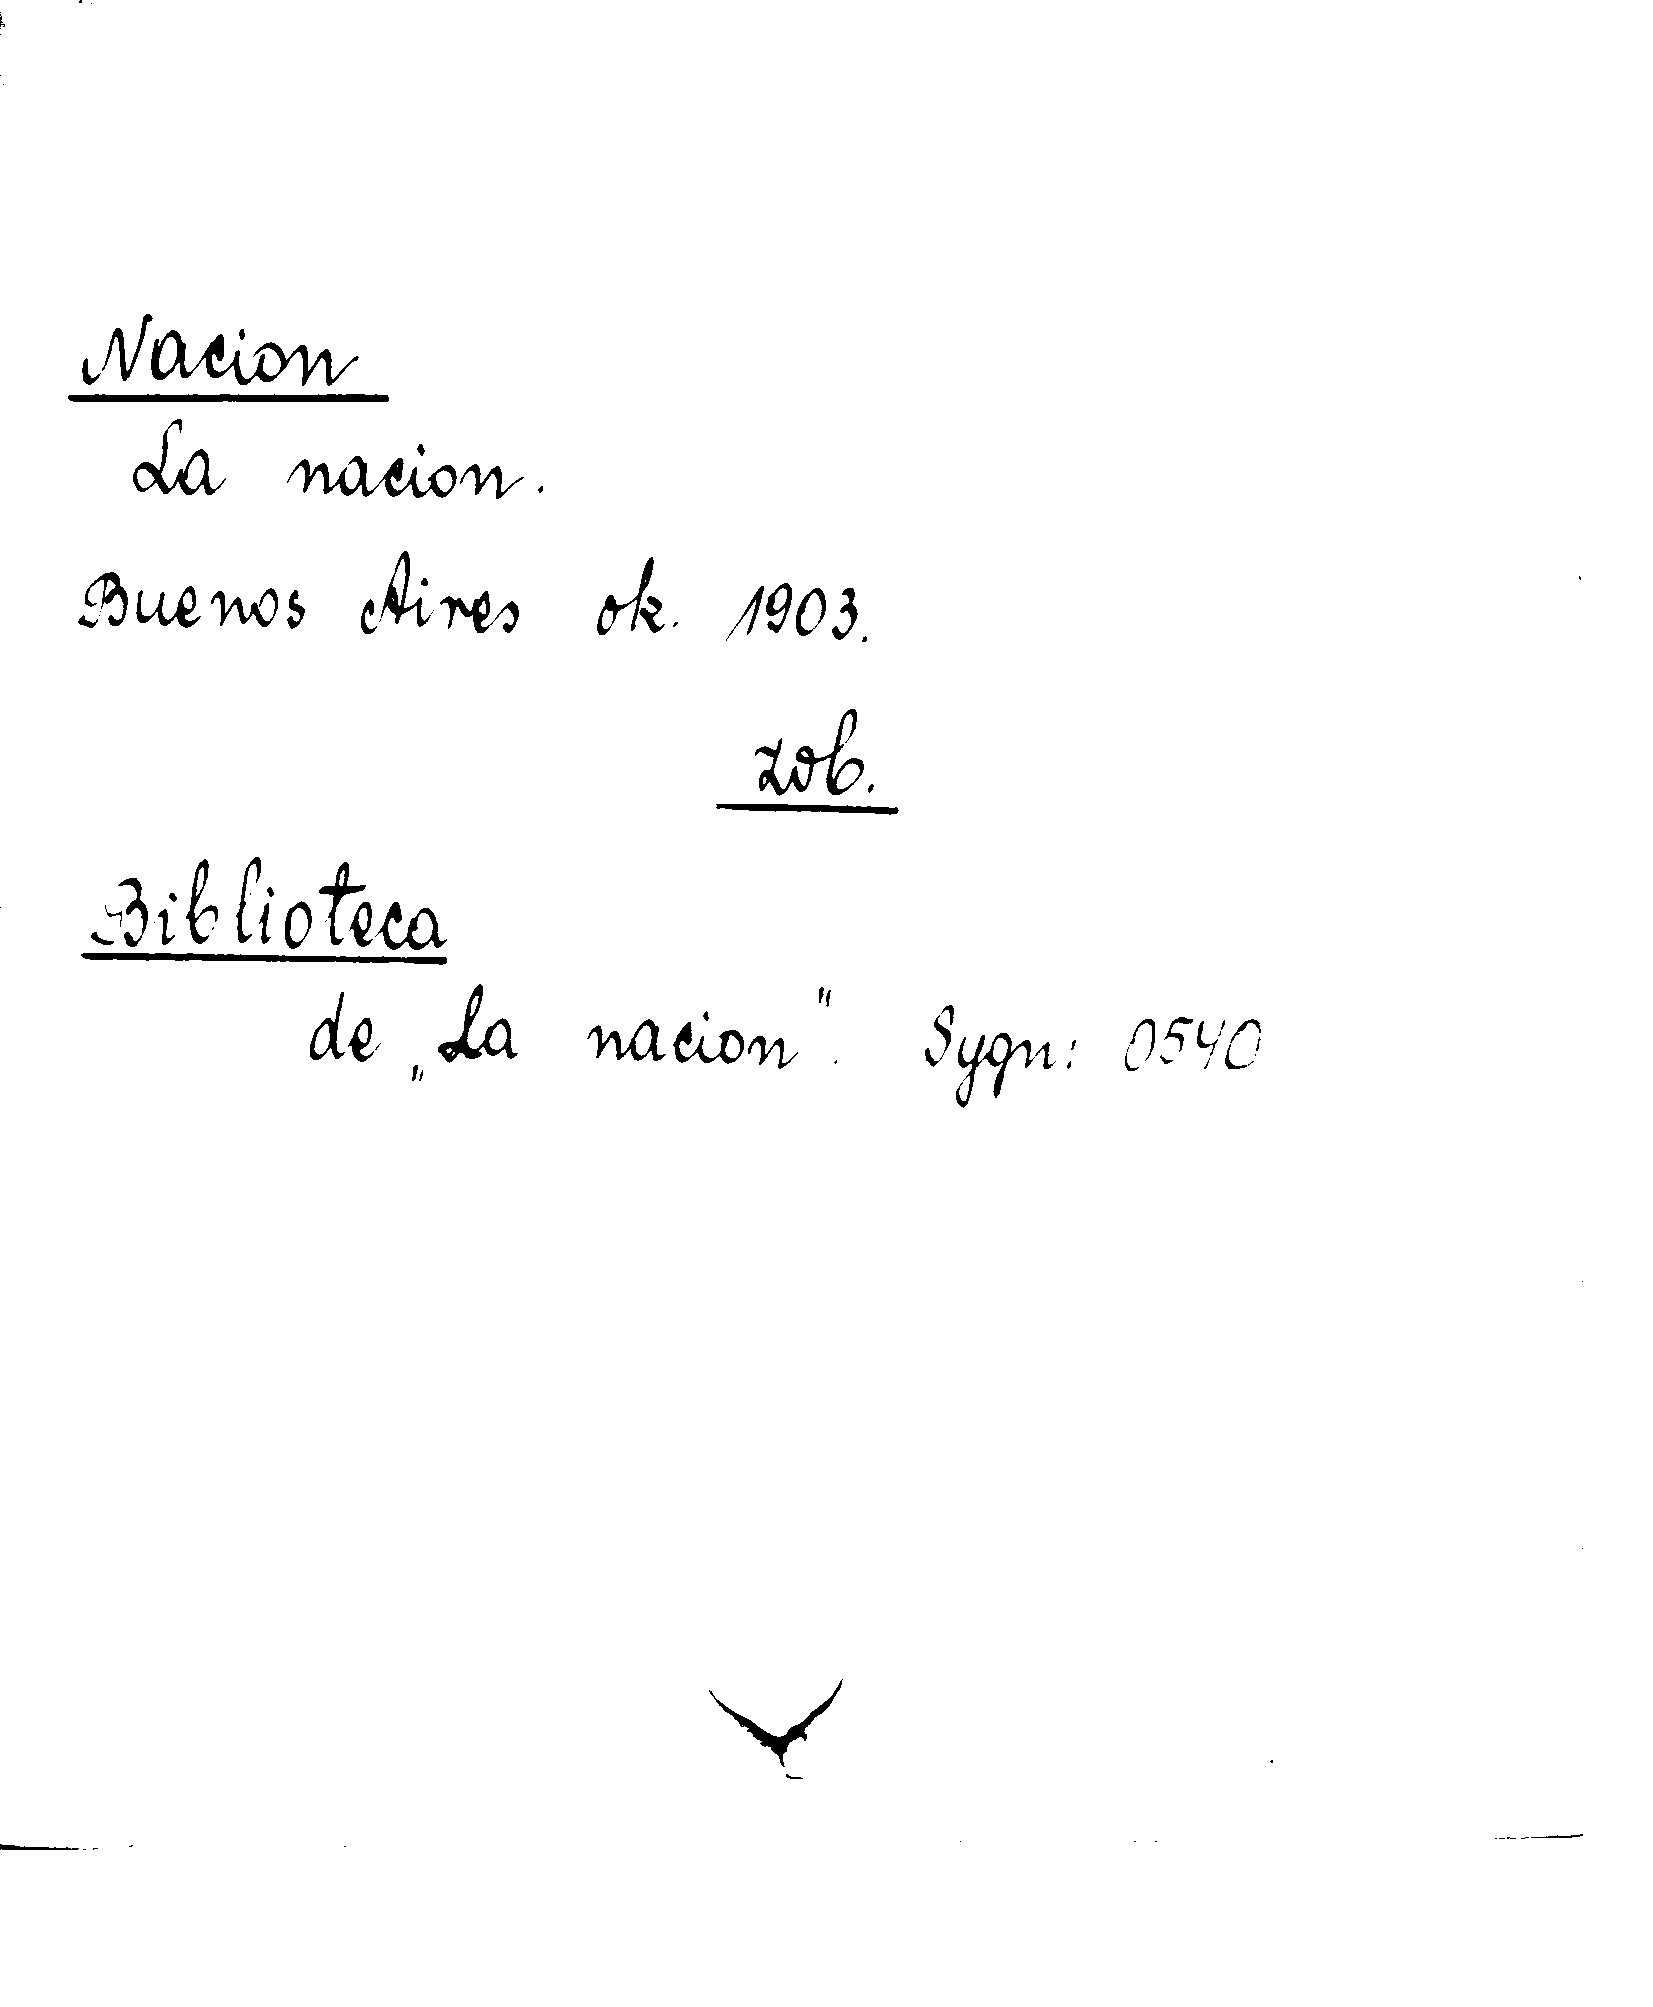 Nacion
La nacion.
Buenos Aires ok. 1903.
zob.
Biblioteca
de „La nacion". Sygn: 0540